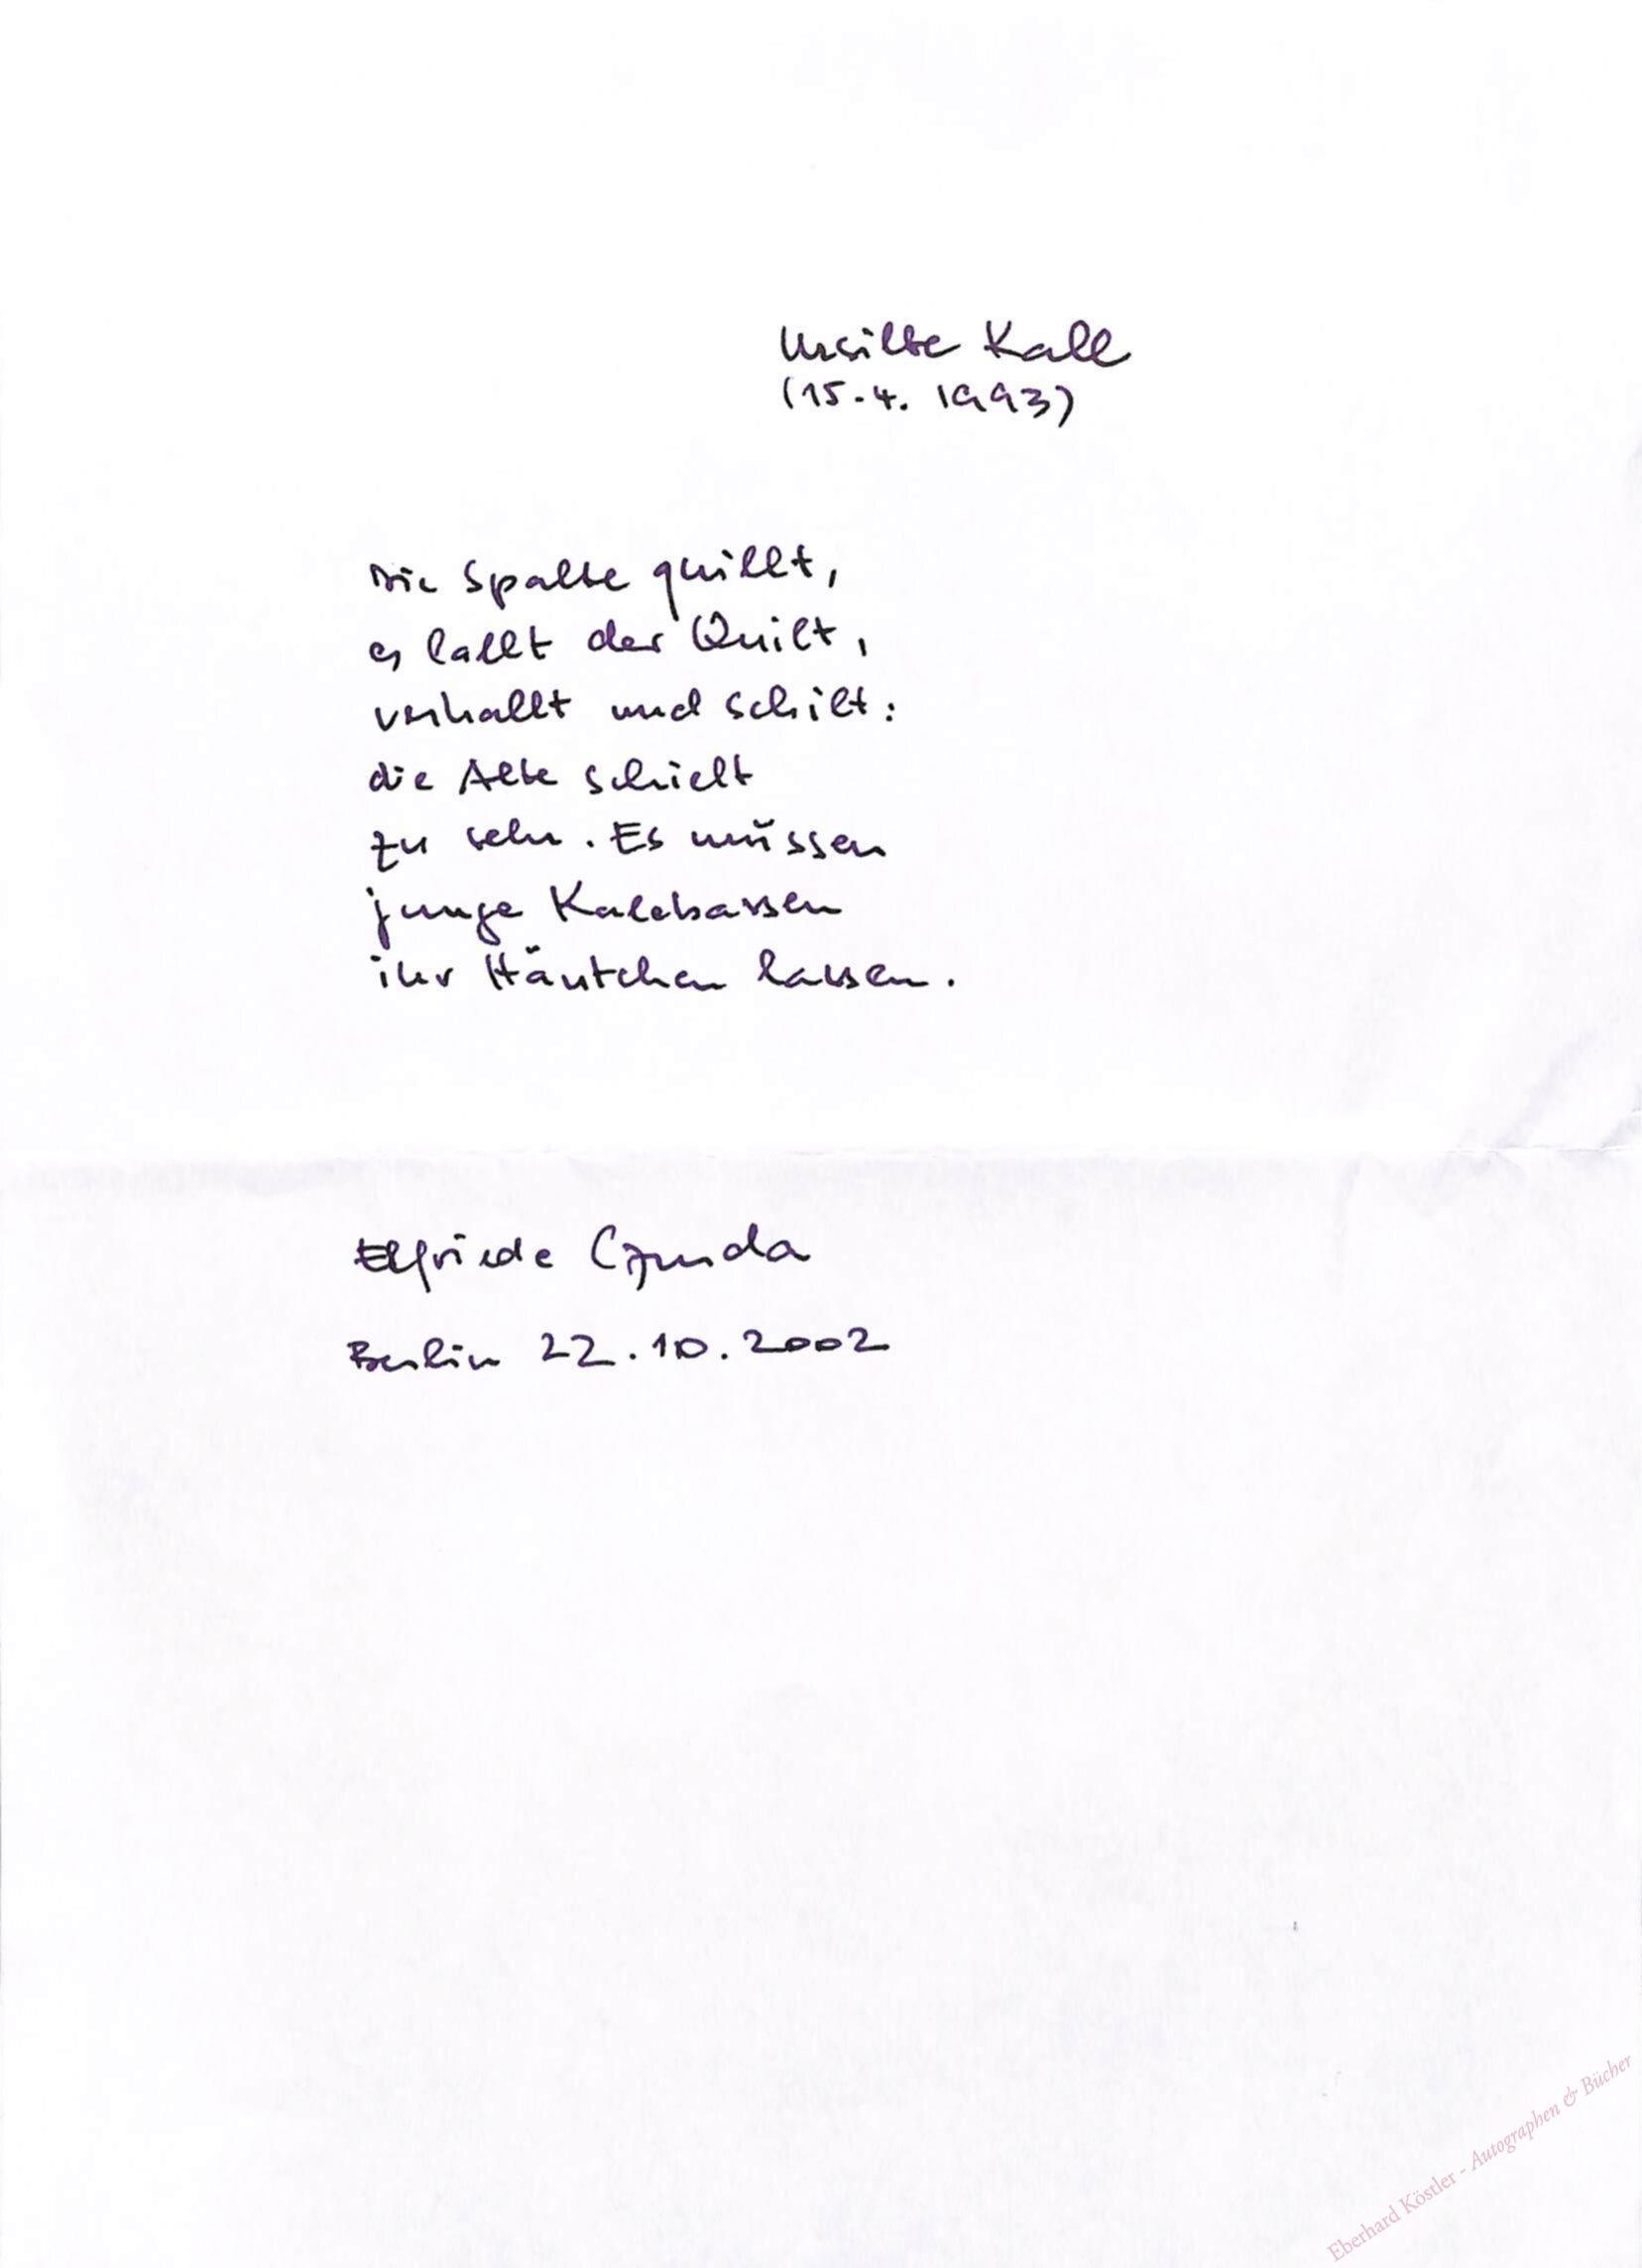 Ursilbe Kall
(15.4. 1993)
Die Spalte quillt,
es lallt der Quilt,
verhallt und schilt:
die Alte schielt
zu sehr. Es müssen
junge Kalebassen
ihr Häutchen lassen.
Elfriede Czurda
Berlin 22.10.2002
Eberhard Köstler - Autographen & Bücher